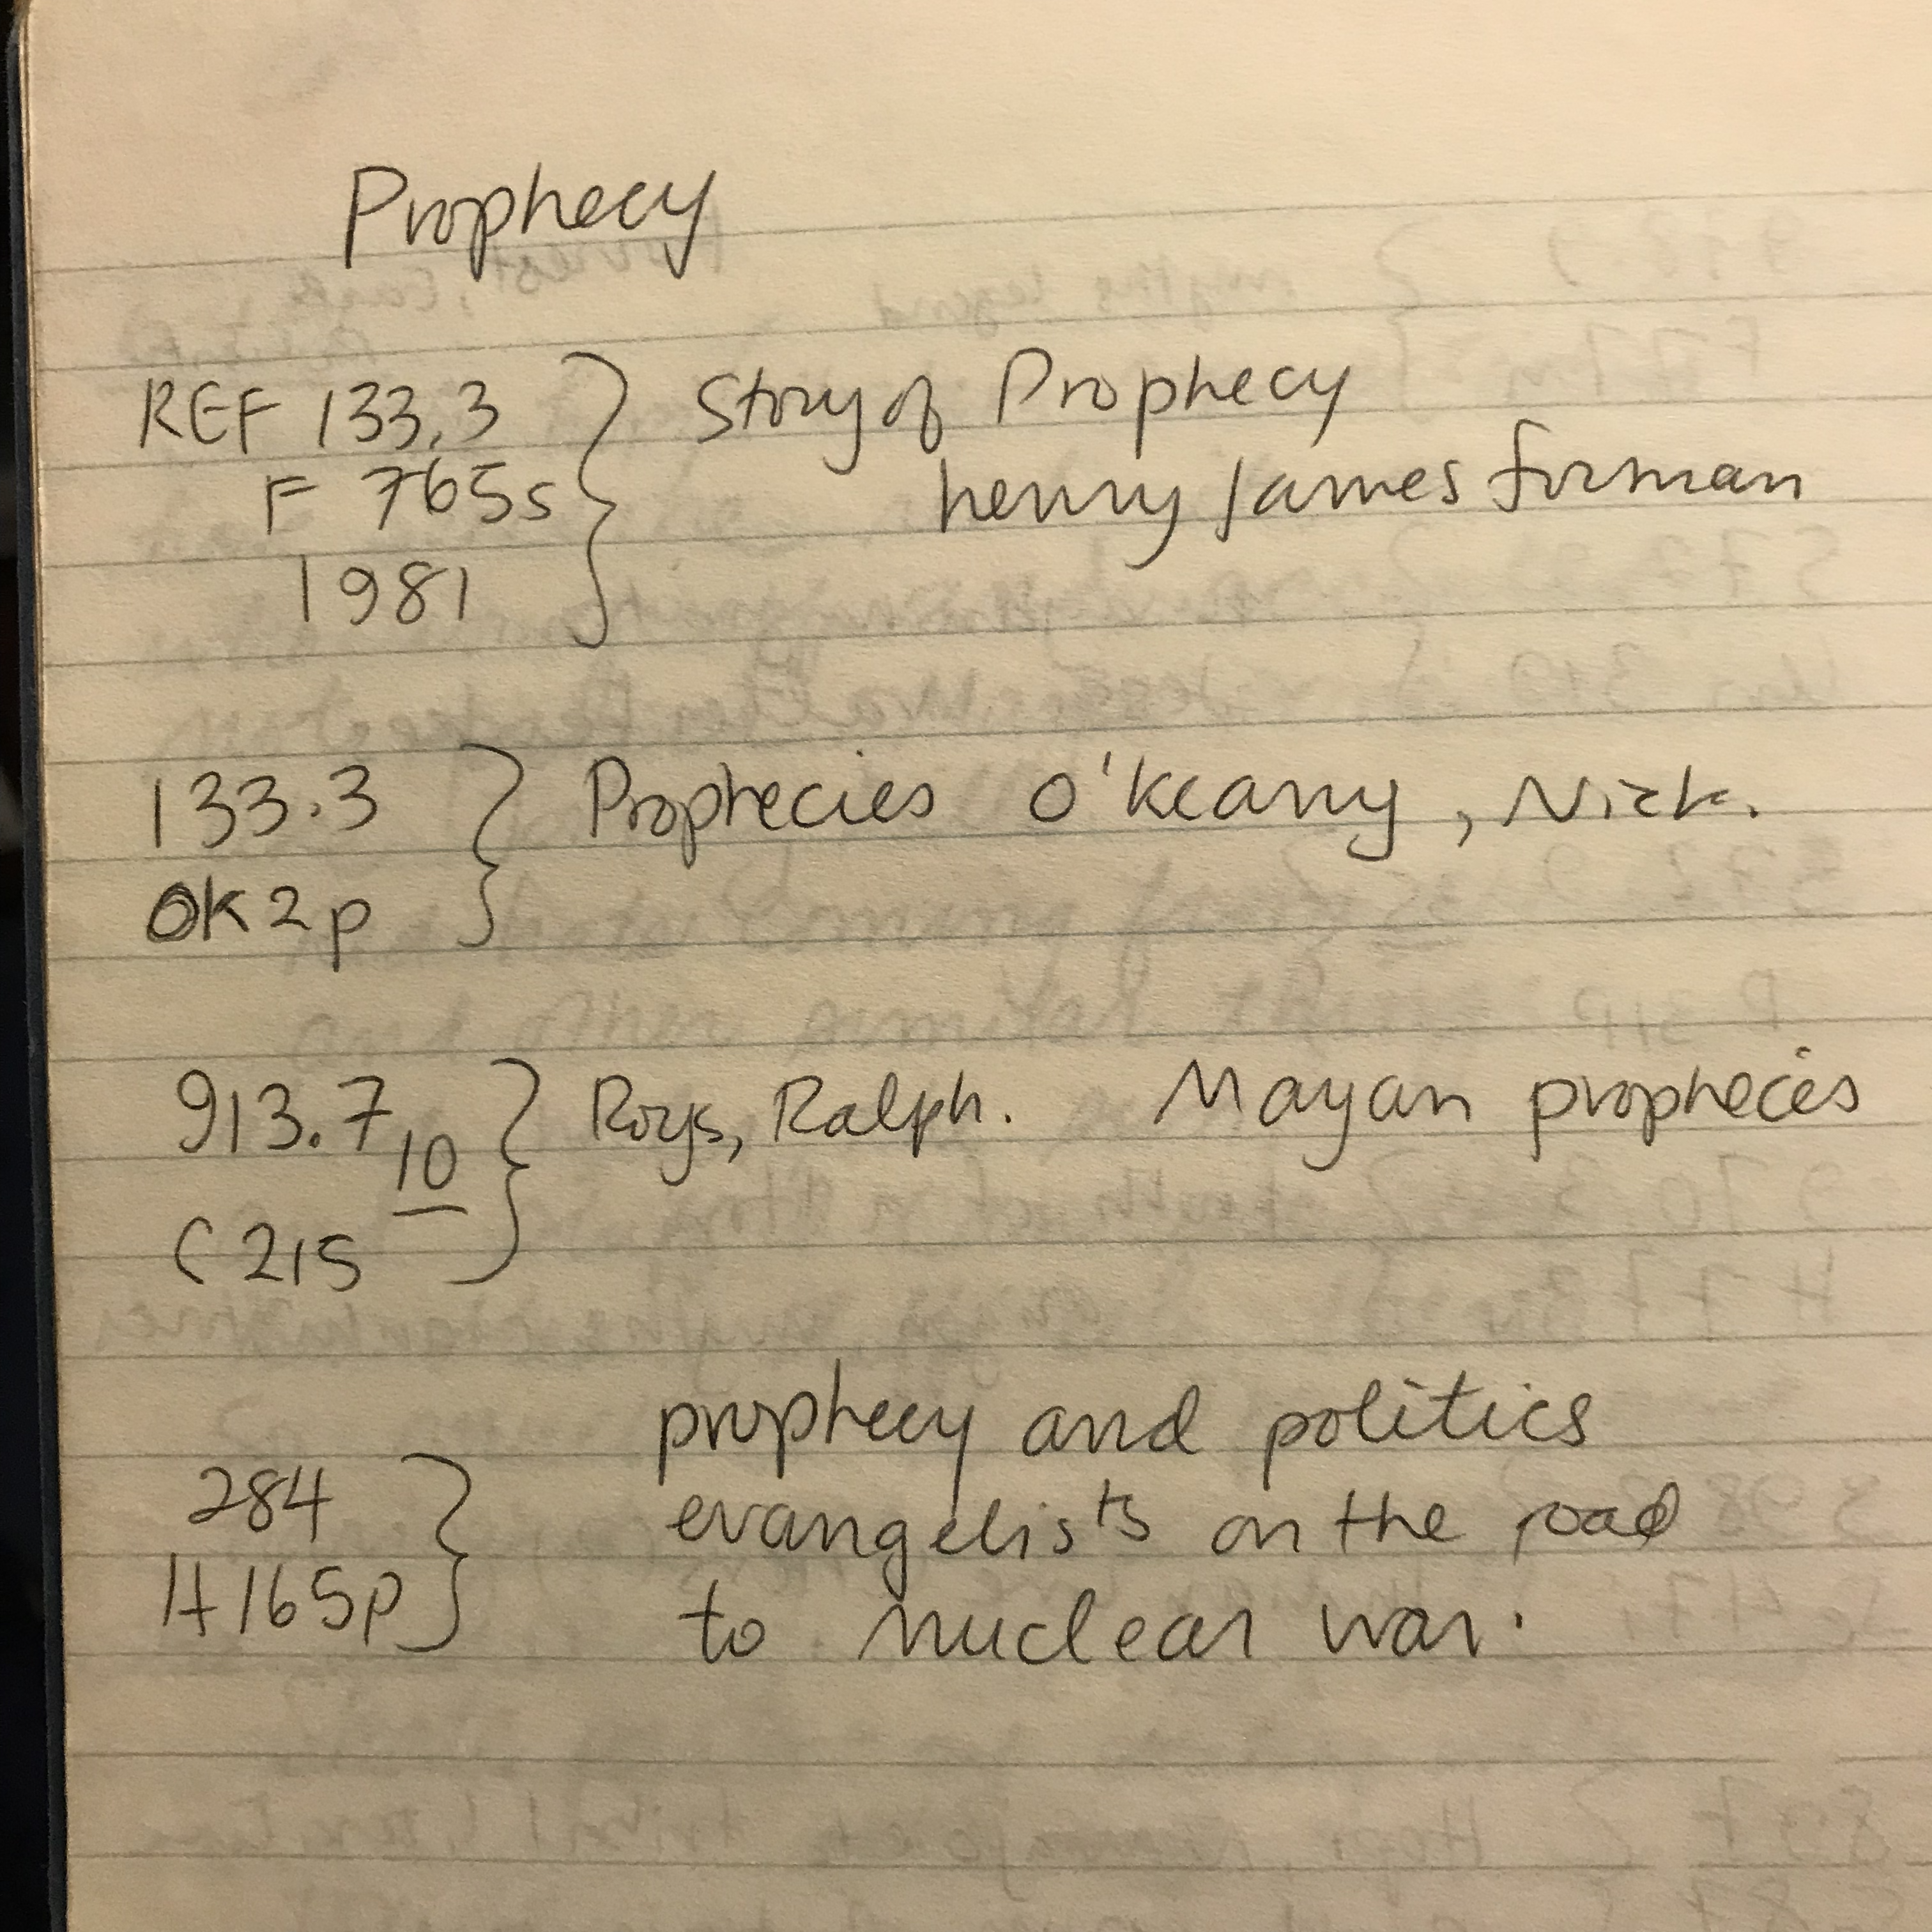 Prophecy
REF 133.3 } Story of Prophecy
F 765s henry James forman
1981
133.3 } Prophecies O'Keany, Nick.
OK2p
913.7 10 } Roys, Ralph. Mayan prophecies
C215
prophecy and politics
284 } evangelists on the road
H165p to nuclear war.